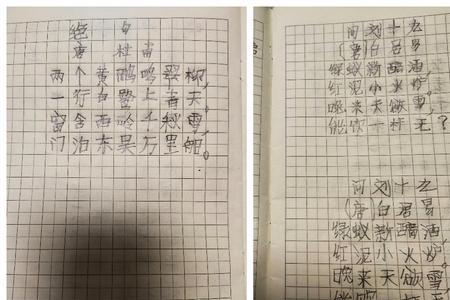 绝句
唐 杜甫
两个黄鹂鸣翠柳，
一行白鹭上青天。
窗含西岭千秋雪，
门泊东吴万里船。
问刘十九
(唐)白居易
绿蚁新醅酒，
红泥小火炉。
晚来天欲雪，
能饮一杯无？
问刘十九
(唐)白居易
绿蚁新醅酒，
红泥小火炉。
晚来天欲雪
能饮